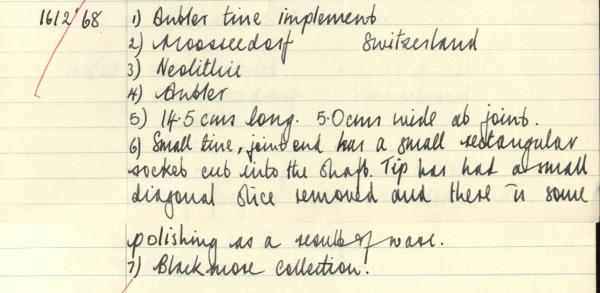 1612/68 1) Antler tine implement
2) Moosseedorf Switzerland
3) Neolithic
4) Antler
5) 14.5 cms long. 5.0 cms wide at joint.
6) Small tine, joint end has a small rectangular
socket cut into the shaft. Tip has had a small
diagonal slice removed and there is some
polishing as a result of wear.
7) Blackmore collection.